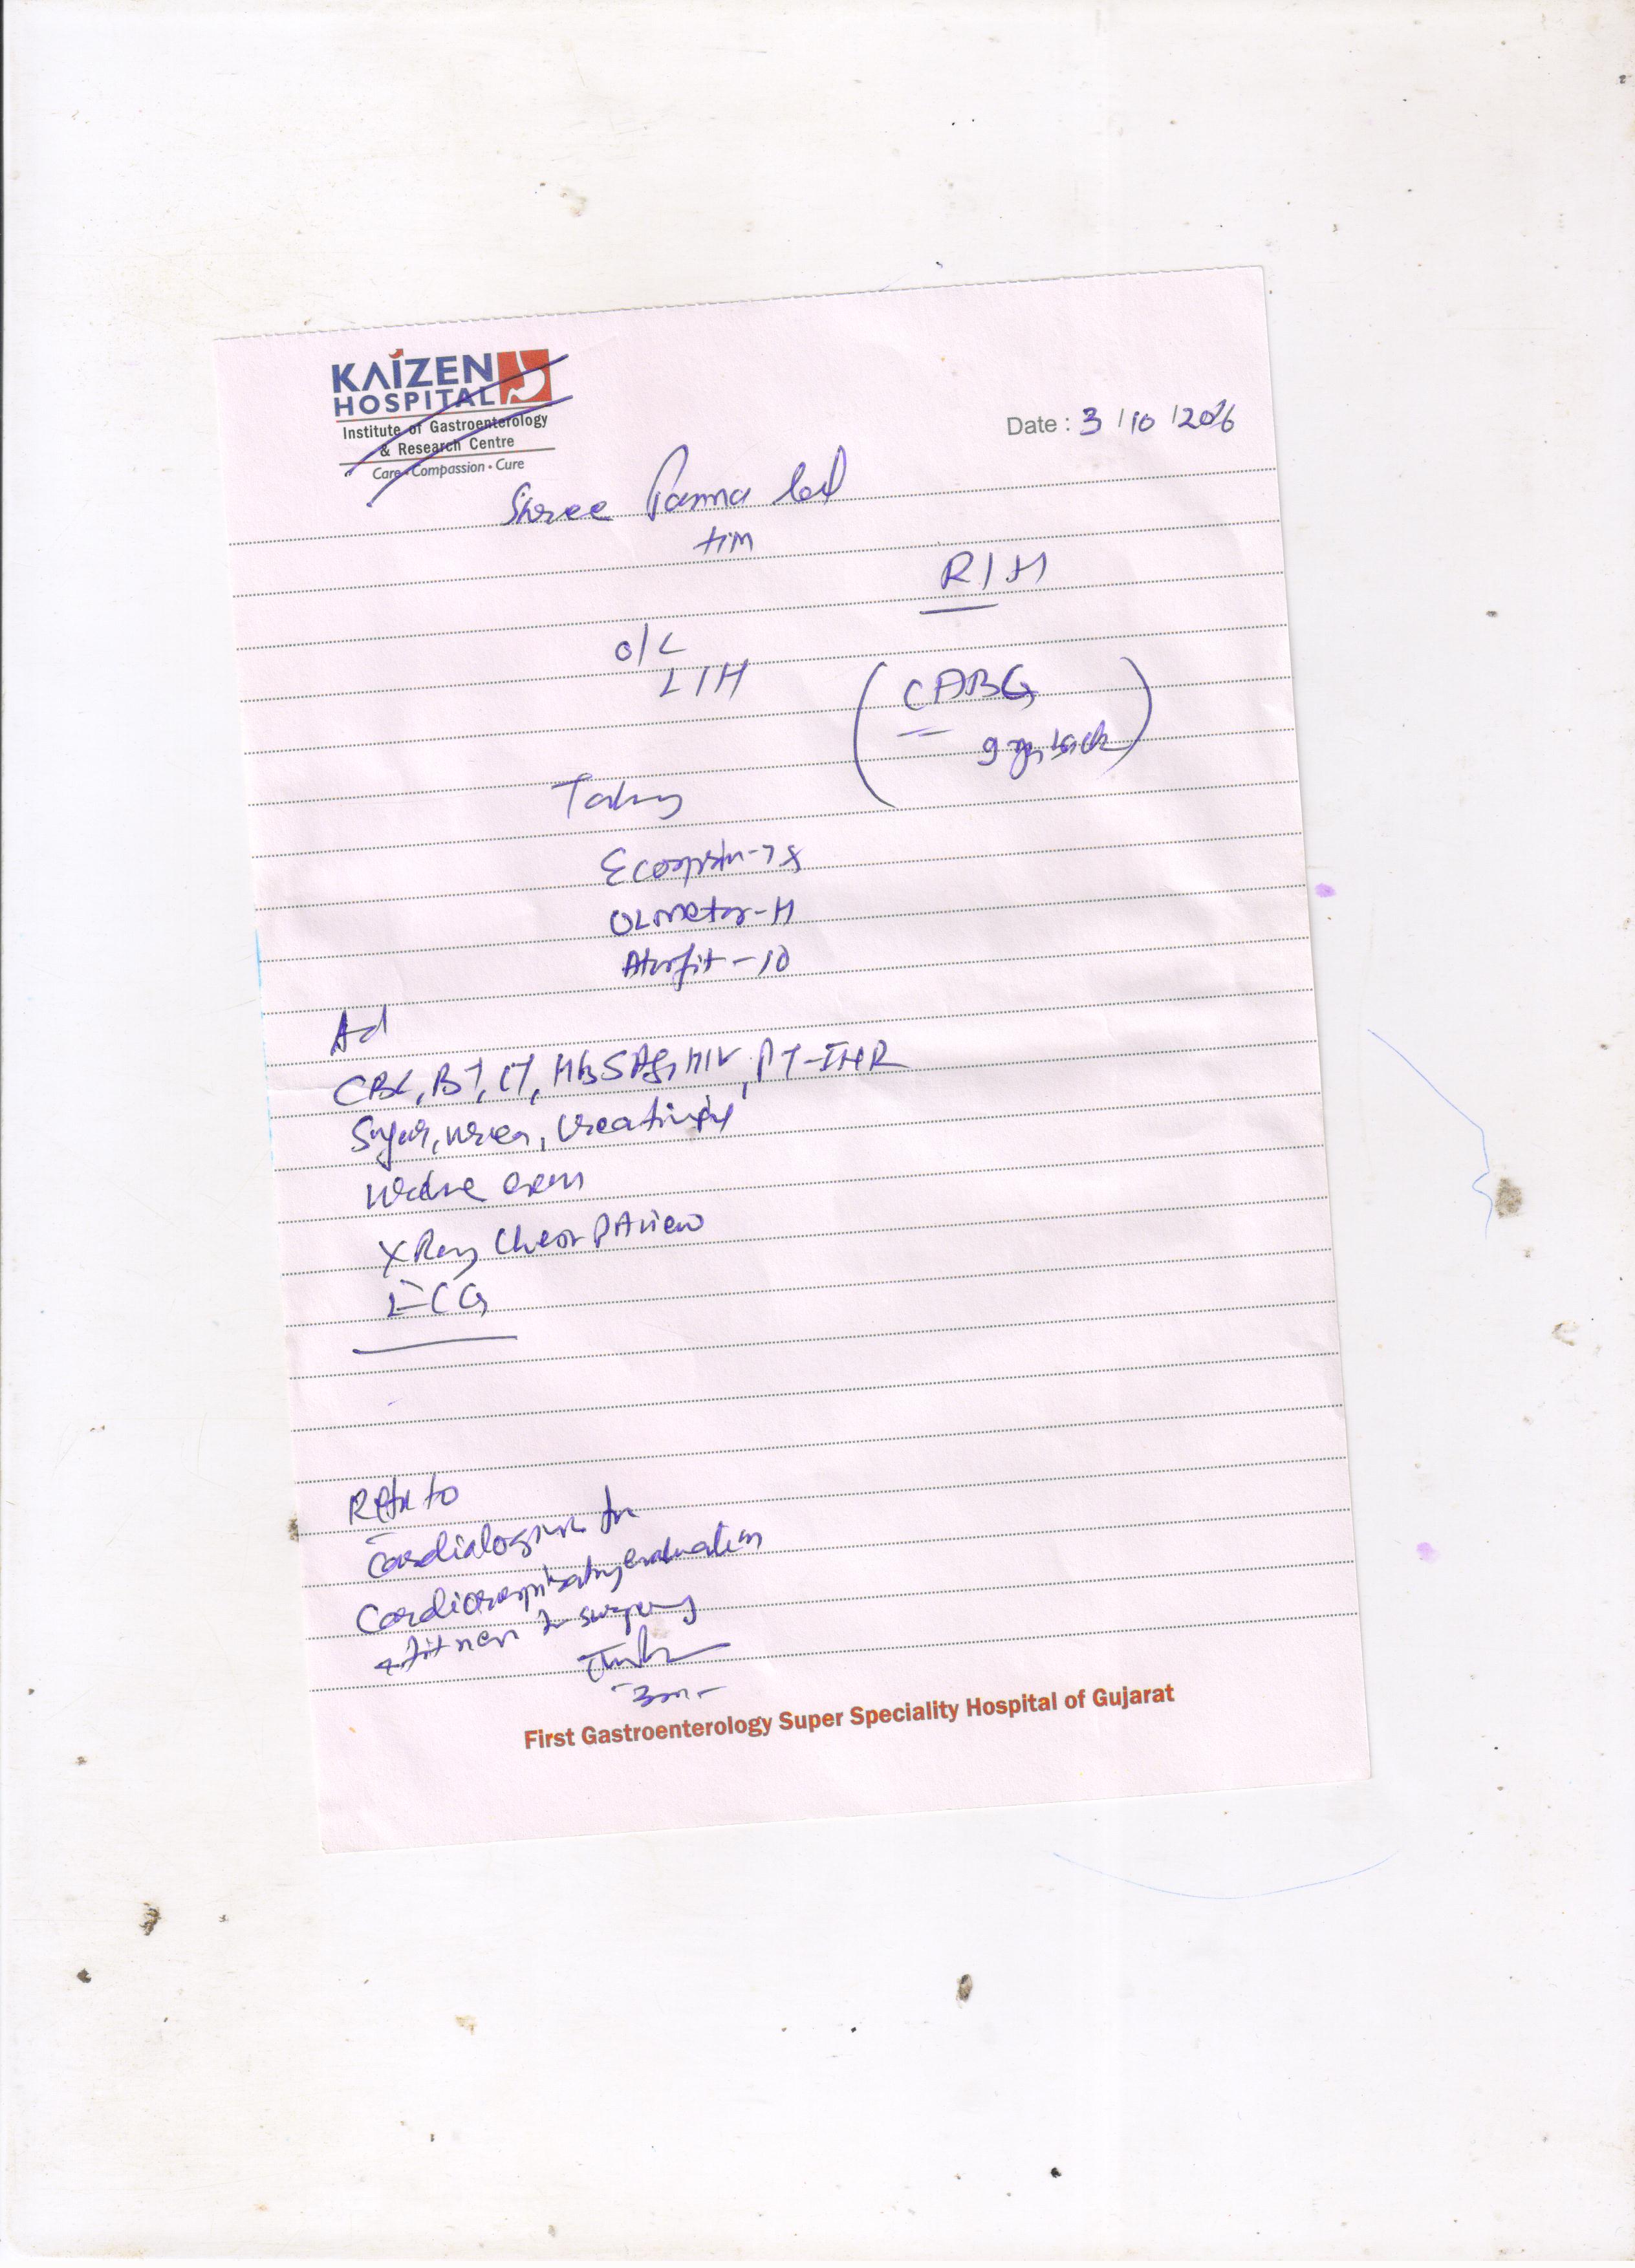 KAIZEN
HOSPITAL
Institute of Gastroenterology
& Research Centre
Care • Compassion • Cure
Date : 3 / 10 /2016
Shree Panna lal
RIH
O/C
LIH
(CABG
9 yrs back)
Taking
Ecosprin-75
OLmetor-H
Atorfit-10
Ad
CBC, BT, CT, HbSAg, HIV, PT-INR
Sugar, urea, Creatinine
Urine exam
X Ray Chest PA view
ECG
Refer to
Cardiologist for
Cardiorespiratory evaluation
& fitness for surgery
First Gastroenterology Super Speciality Hospital of Gujarat